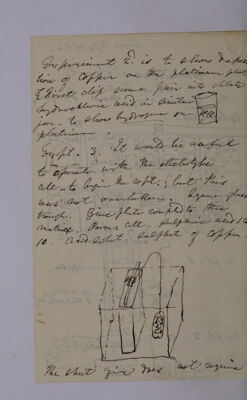 Experiment 2 is to show deposi
tion of copper on the platinum plate
first dip same pair into dilute
hydrochloric acid in similar
jar to show hydrogen on
platinum.
Expt. 3. It would be useful
to operate with the electrolytic
cell to begin the expt.; but this
was not overtaken. Square glass
trough. Zinc plate coupled to
Porous cell. Sulphuric acid 1 to
10. Acid solut. sulphate of copper
The sheet zinc does not require